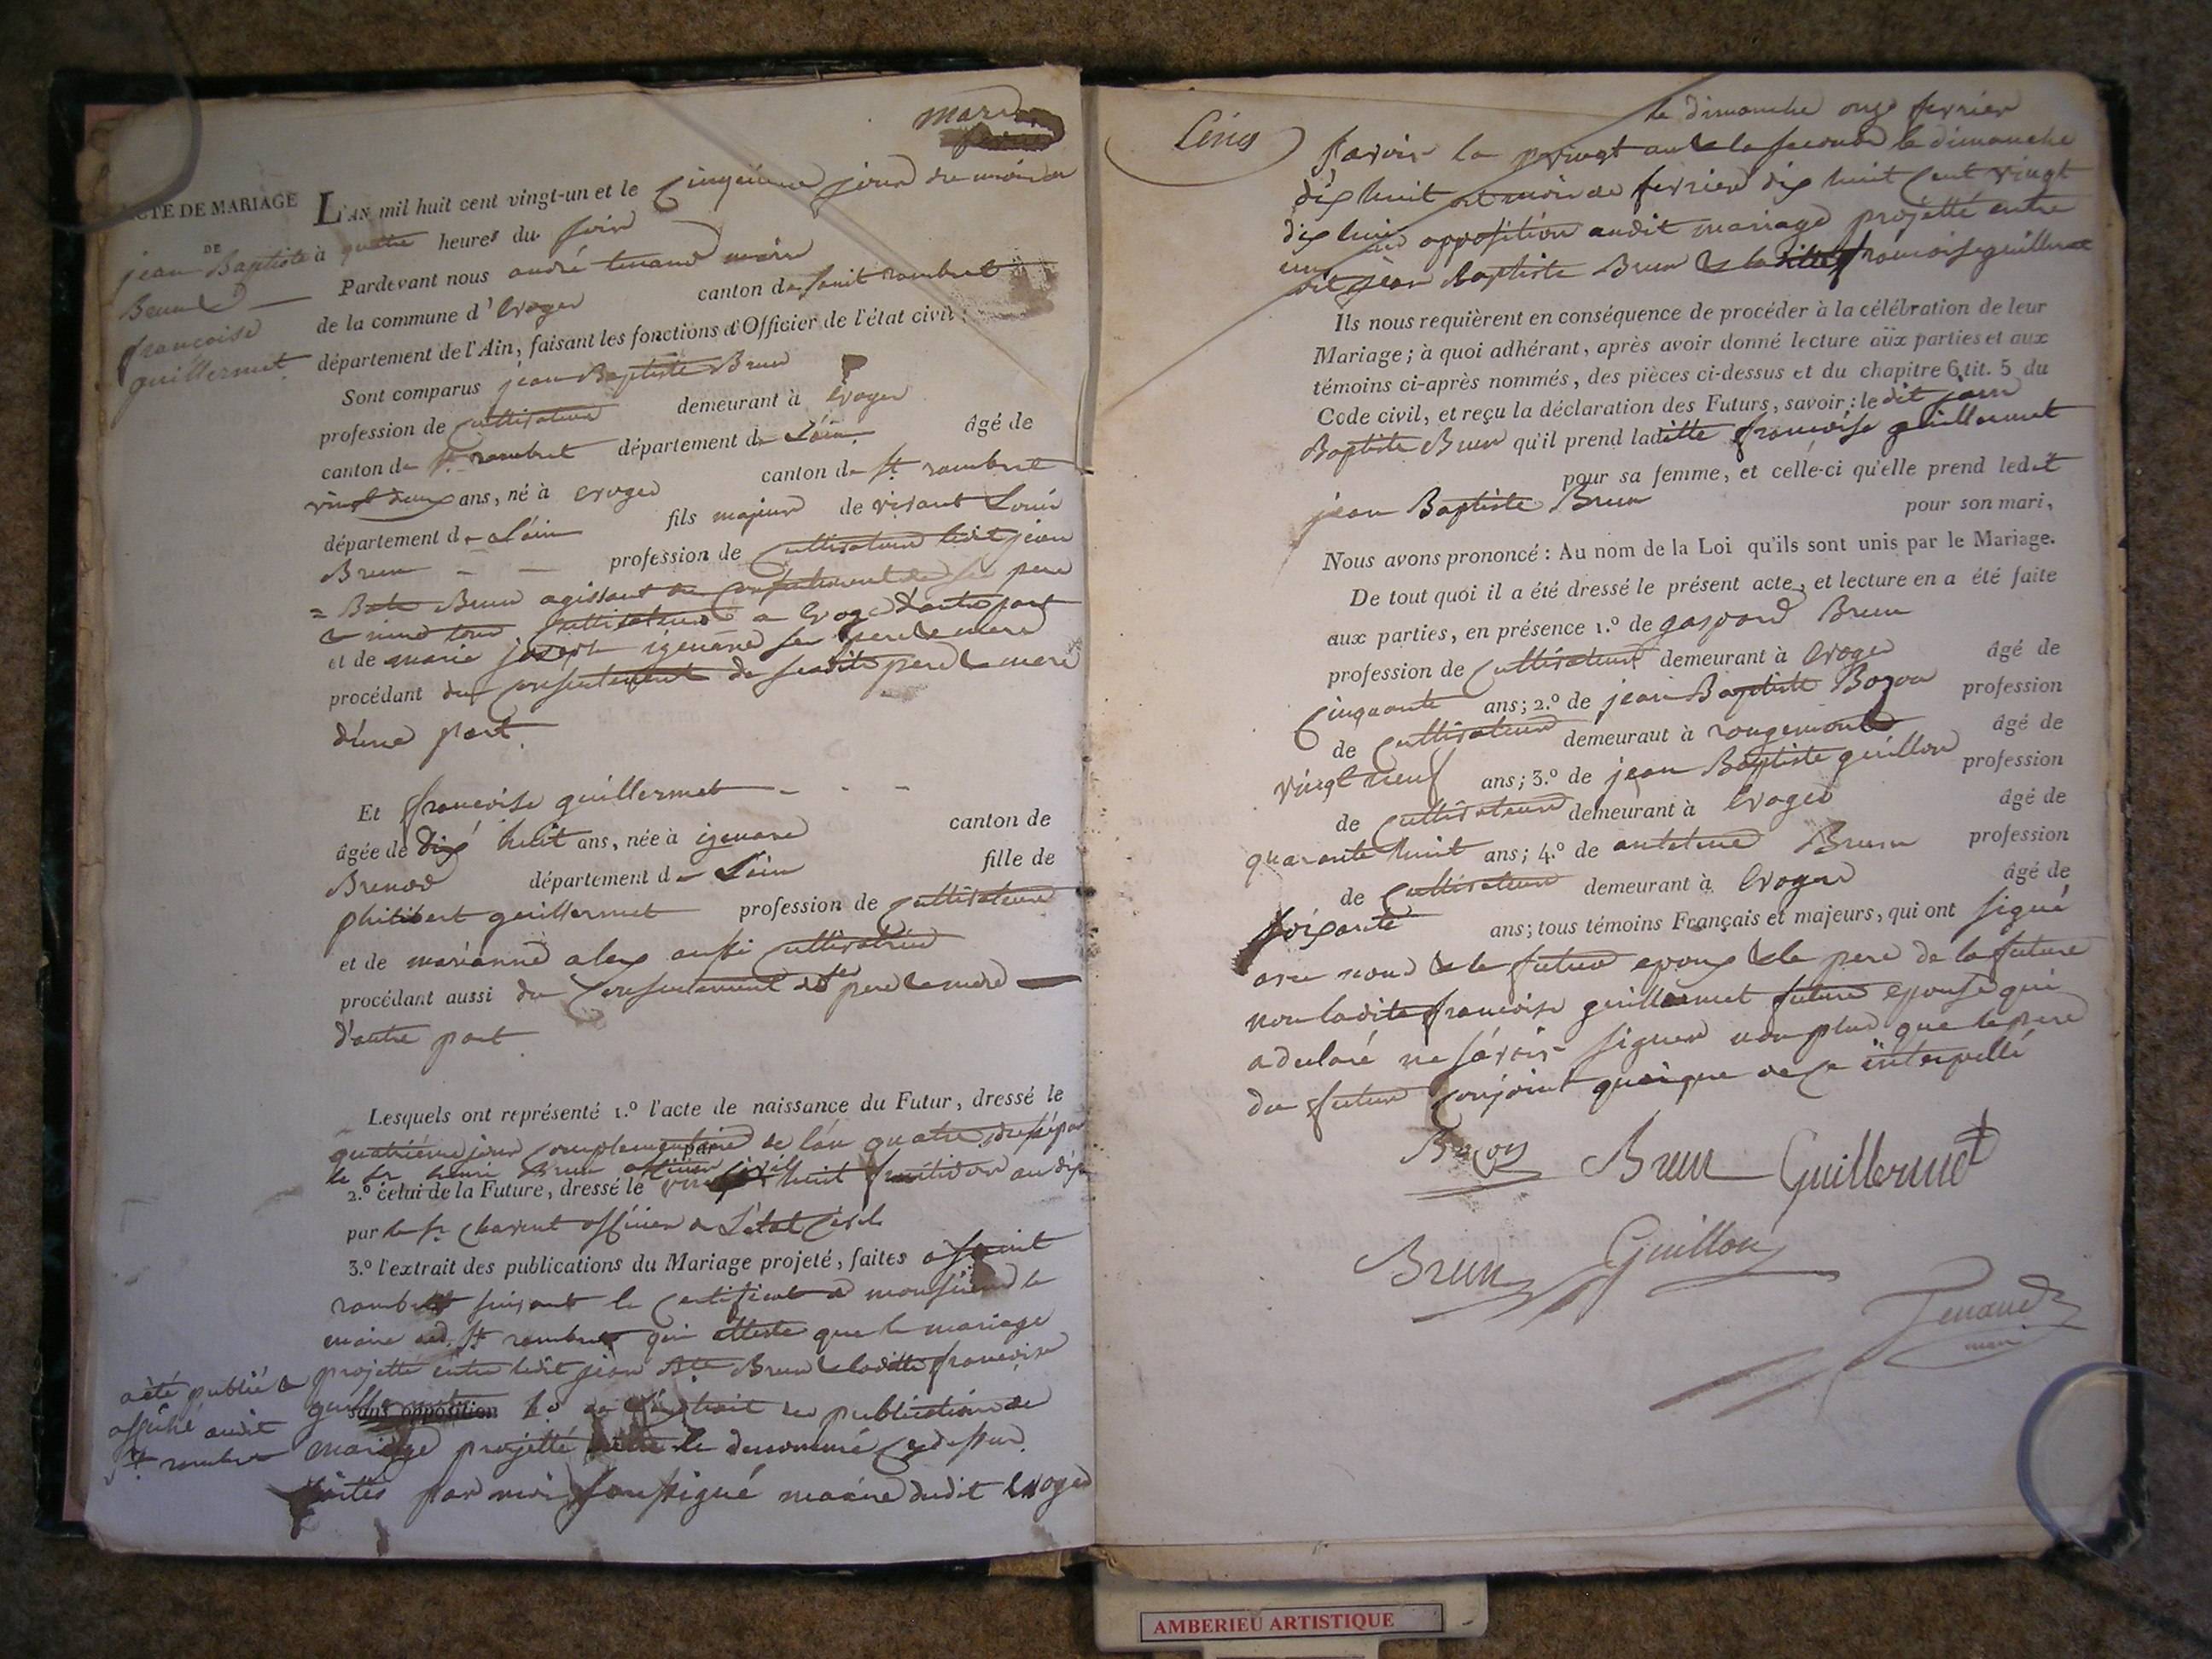 mars
ACTE DE MARIAGE
DE
jean Baptiste
Brun &
françoise
guillermet
L'AN mil huit cent vingt-un et le Cinquieme jour du mois de
à quatre heures du soir
Pardevant nous andré tenand maire
de la commune d'Evoges canton de saint rambert
département de l'Ain, faisant les fonctions d'Officier de l'état civil;
Sont comparus jean Baptiste Brun
profession de Cultivateur demeurant à Evoges
canton de St rambert département de L'ain âgé de
vingt deux ans, né à evoges canton de St rambert
département de L'ain fils majeur de vivant Louis
Brun profession de Cultivateur ledit jean
= Bte Brun agissant du consentement de ses pere
Cultivateur a Evoges d'autre part
et de marie joseph igenare ses pere & mere
procédant du Consentement de sesdits pere & mere
d'une part
Et françoise guillermet
âgée de dix huit ans, née à igenare canton de
Brenod département de L'ain fille de
philibert guillermet profession de cultivateur
et de marianne alex aussi cultivatrice
procédant aussi du Consentement de ses pere & mere
d'autre part
Lesquels ont représenté 1.º l'acte de naissance du Futur, dressé le
quatriéme jour complementaire de l'an quatre
par le Sr Brun officier civil
2.º celui de la Future, dressé le vingt huit fructidor an dix
par le Sr Charvet officier de L'état Civil
3.º l'extrait des publications du Mariage projeté, faites a saint
rambert suivant le Certificat de monsieur le
maire de St rambert qui atteste que le mariage
projetté entre ledit jean Bte Brun & laditte françoise
a été publié &
affiché audit
St rambert
sans opposition de L'extrait des publications de
mariage projetté entre le denommé Cy dessus
faites par moi soussigné maire dudit Evoges
Cinq
le dimanche onze fevrier
savoir la premiere & la seconde le dimanche
dix huit du mois de fevrier dix huit Cent vingt
un opposition audit mariage projetté entre
ledit jean Baptiste Brun & laditte françoise guillermet
Ils nous requièrent en conséquence de procéder à la célébration de leur
Mariage; à quoi adhérant, après avoir donné lecture aux parties et aux
témoins ci-après nommés, des pièces ci-dessus et du chapitre 6 tit. 5 du
Code civil, et reçu la déclaration des Futurs, savoir: ledit jean
Baptiste Brun qu'il prend laditte françoise guillermet
pour sa femme, et celle-ci qu'elle prend ledit
jean Baptiste Brun pour son mari,
Nous avons prononcé: Au nom de la Loi qu'ils sont unis par le Mariage.
De tout quoi il a été dressé le présent acte, et lecture en a été faite
aux parties, en présence 1.º de gaspard Brun
profession de Cultivateur demeurant à Evoges âgé de
Cinquante ans; 2.º de jean Baptiste Bozon profession
de Cultivateur demeuraut à rougemont âgé de
vingt neuf ans; 3.º de jean Baptiste guillon profession
de Cultivateur demeurant à Evoges âgé de
quarante huit ans; 4.º de Brun profession
de Cultivateur demeurant à Evoges âgé de
soixante ans; tous témoins Français et majeurs, qui ont signé
avec nous & le futur epoux & le pere de la future
non ladite françoise guillermet future epouse qui
a declaré ne sávoir signer non plus que le pere
du futur Conjoint quoique de Ce interpellé
Bozon Brun Guillermet
Brun Guillon
Tenand
maire
AMBERIEU ARTISTIQUE